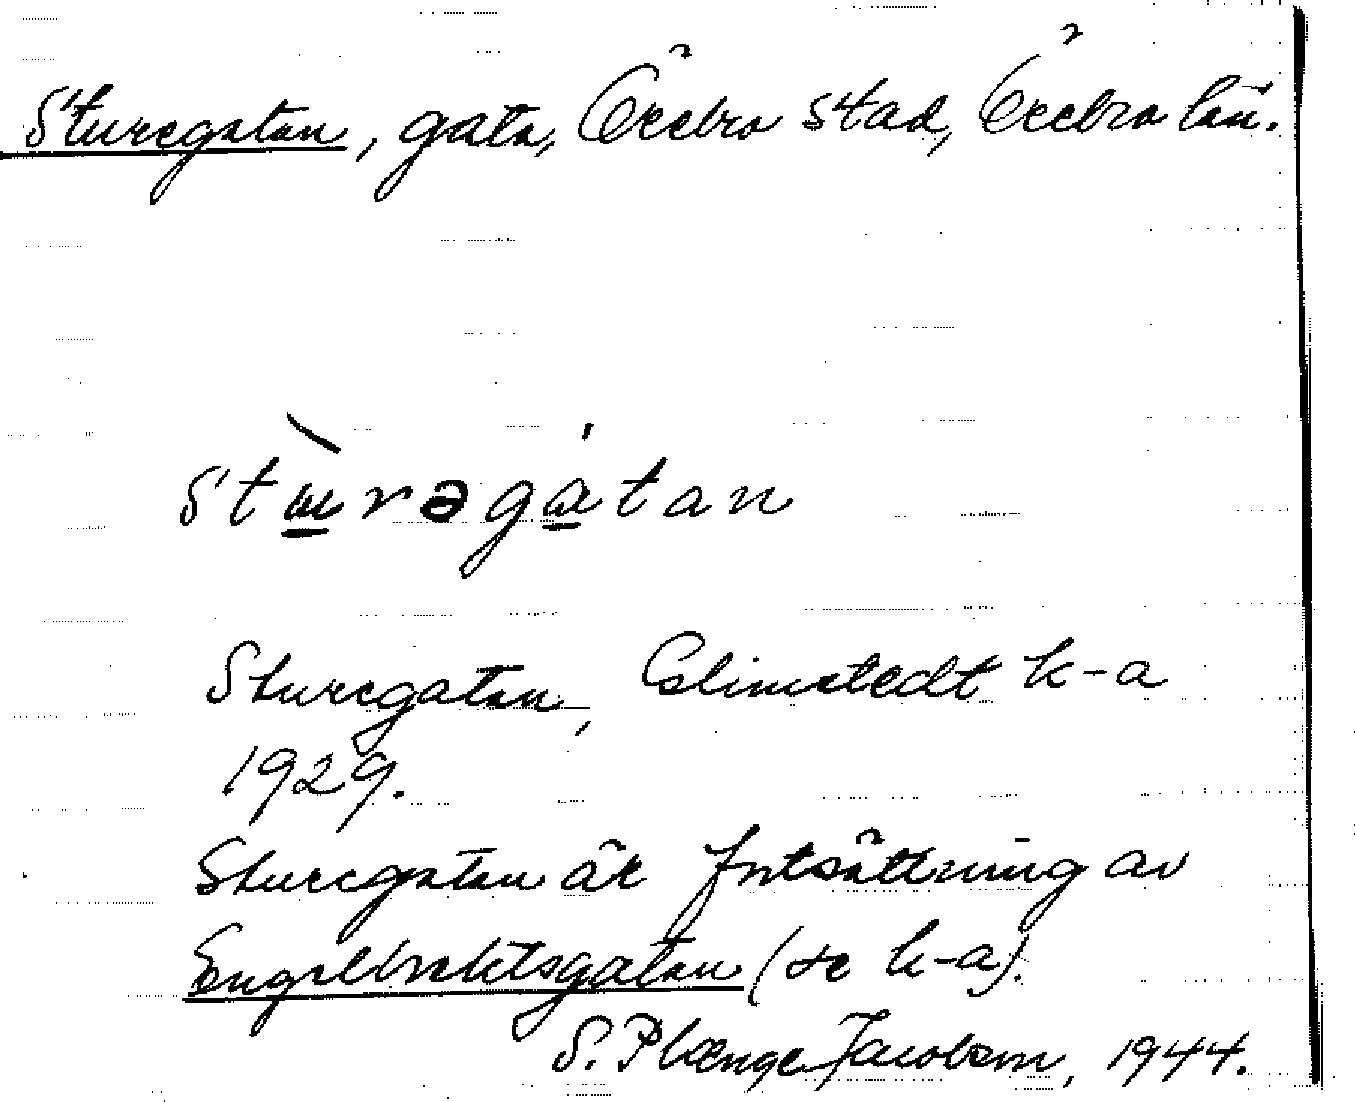 Sturegatan, gata, Örebro stad, Örebro län.
Stɯ̀rəgátan
Sturegatan, Elimstedt k-a
1929.
Sturegatan är fortsättning av
Engelbrektsgatan (se k-a).
S. Plænge Jacobson, 1944.